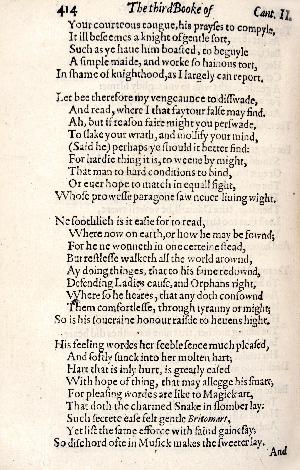 414 The third Booke of Cant. II.
Your courteous tongue, his prayses to compyle,
It ill beseemes a knight of gentle sort,
Such as ye haue him boasted, to beguyle
A simple maide, and worke so hainous tort,
In shame of knighthood, as I largely can report.
Let bee therefore my vengeaunce to disswade,
And read, where I that faytour false may find.
Ah, but if reason faire might you perswade,
To slake your wrath, and mollify your mind,
(Said he) perhaps ye should it better find:
For hardie thing it is, to weene by might,
That man to hard conditions to bind,
Or euer hope to match in equall fight,
Whose prowesse paragone saw neuer liuing wight.
Ne soothlich is it easie for to read,
Where now on earth, or how he may be fownd;
For he ne wonneth in one certeine stead,
But restlesse walketh all the world arownd,
Ay doing thinges, that to his fame redownd,
Defending Ladies cause, and Orphans right,
Where so he heares, that any doth confownd
Them comfortlesse, through tyranny or might;
So is his soueraine honour raisde to heuens hight.
His feeling wordes her feeble sence much pleased,
And softly sunck into her molten hart;
Hart that is inly hurt, is greatly eased
With hope of thing, that may allegge his smart;
For pleasing wordes are like to Magick art,
That doth the charmed Snake in slomber lay:
Such secrete ease felt gentle Britomart,
Yet list the same efforce with faind gainesay;
So dischord ofte in Musick makes the sweeter lay.
And